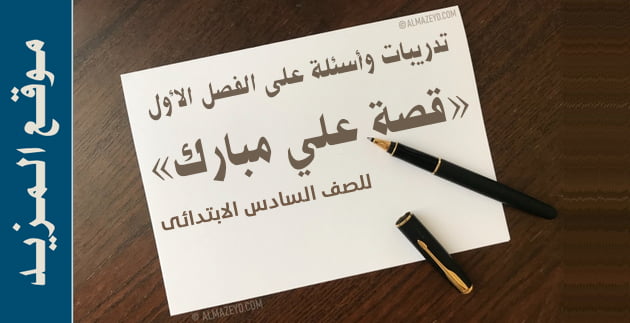 © ALMAZEYD.COM
تدريبات وأسئلة على الفصل الأول
«قصة علي مبارك»
للصف السادس الابتدائى
© ALMAZEYD.COM
موقع المزيد